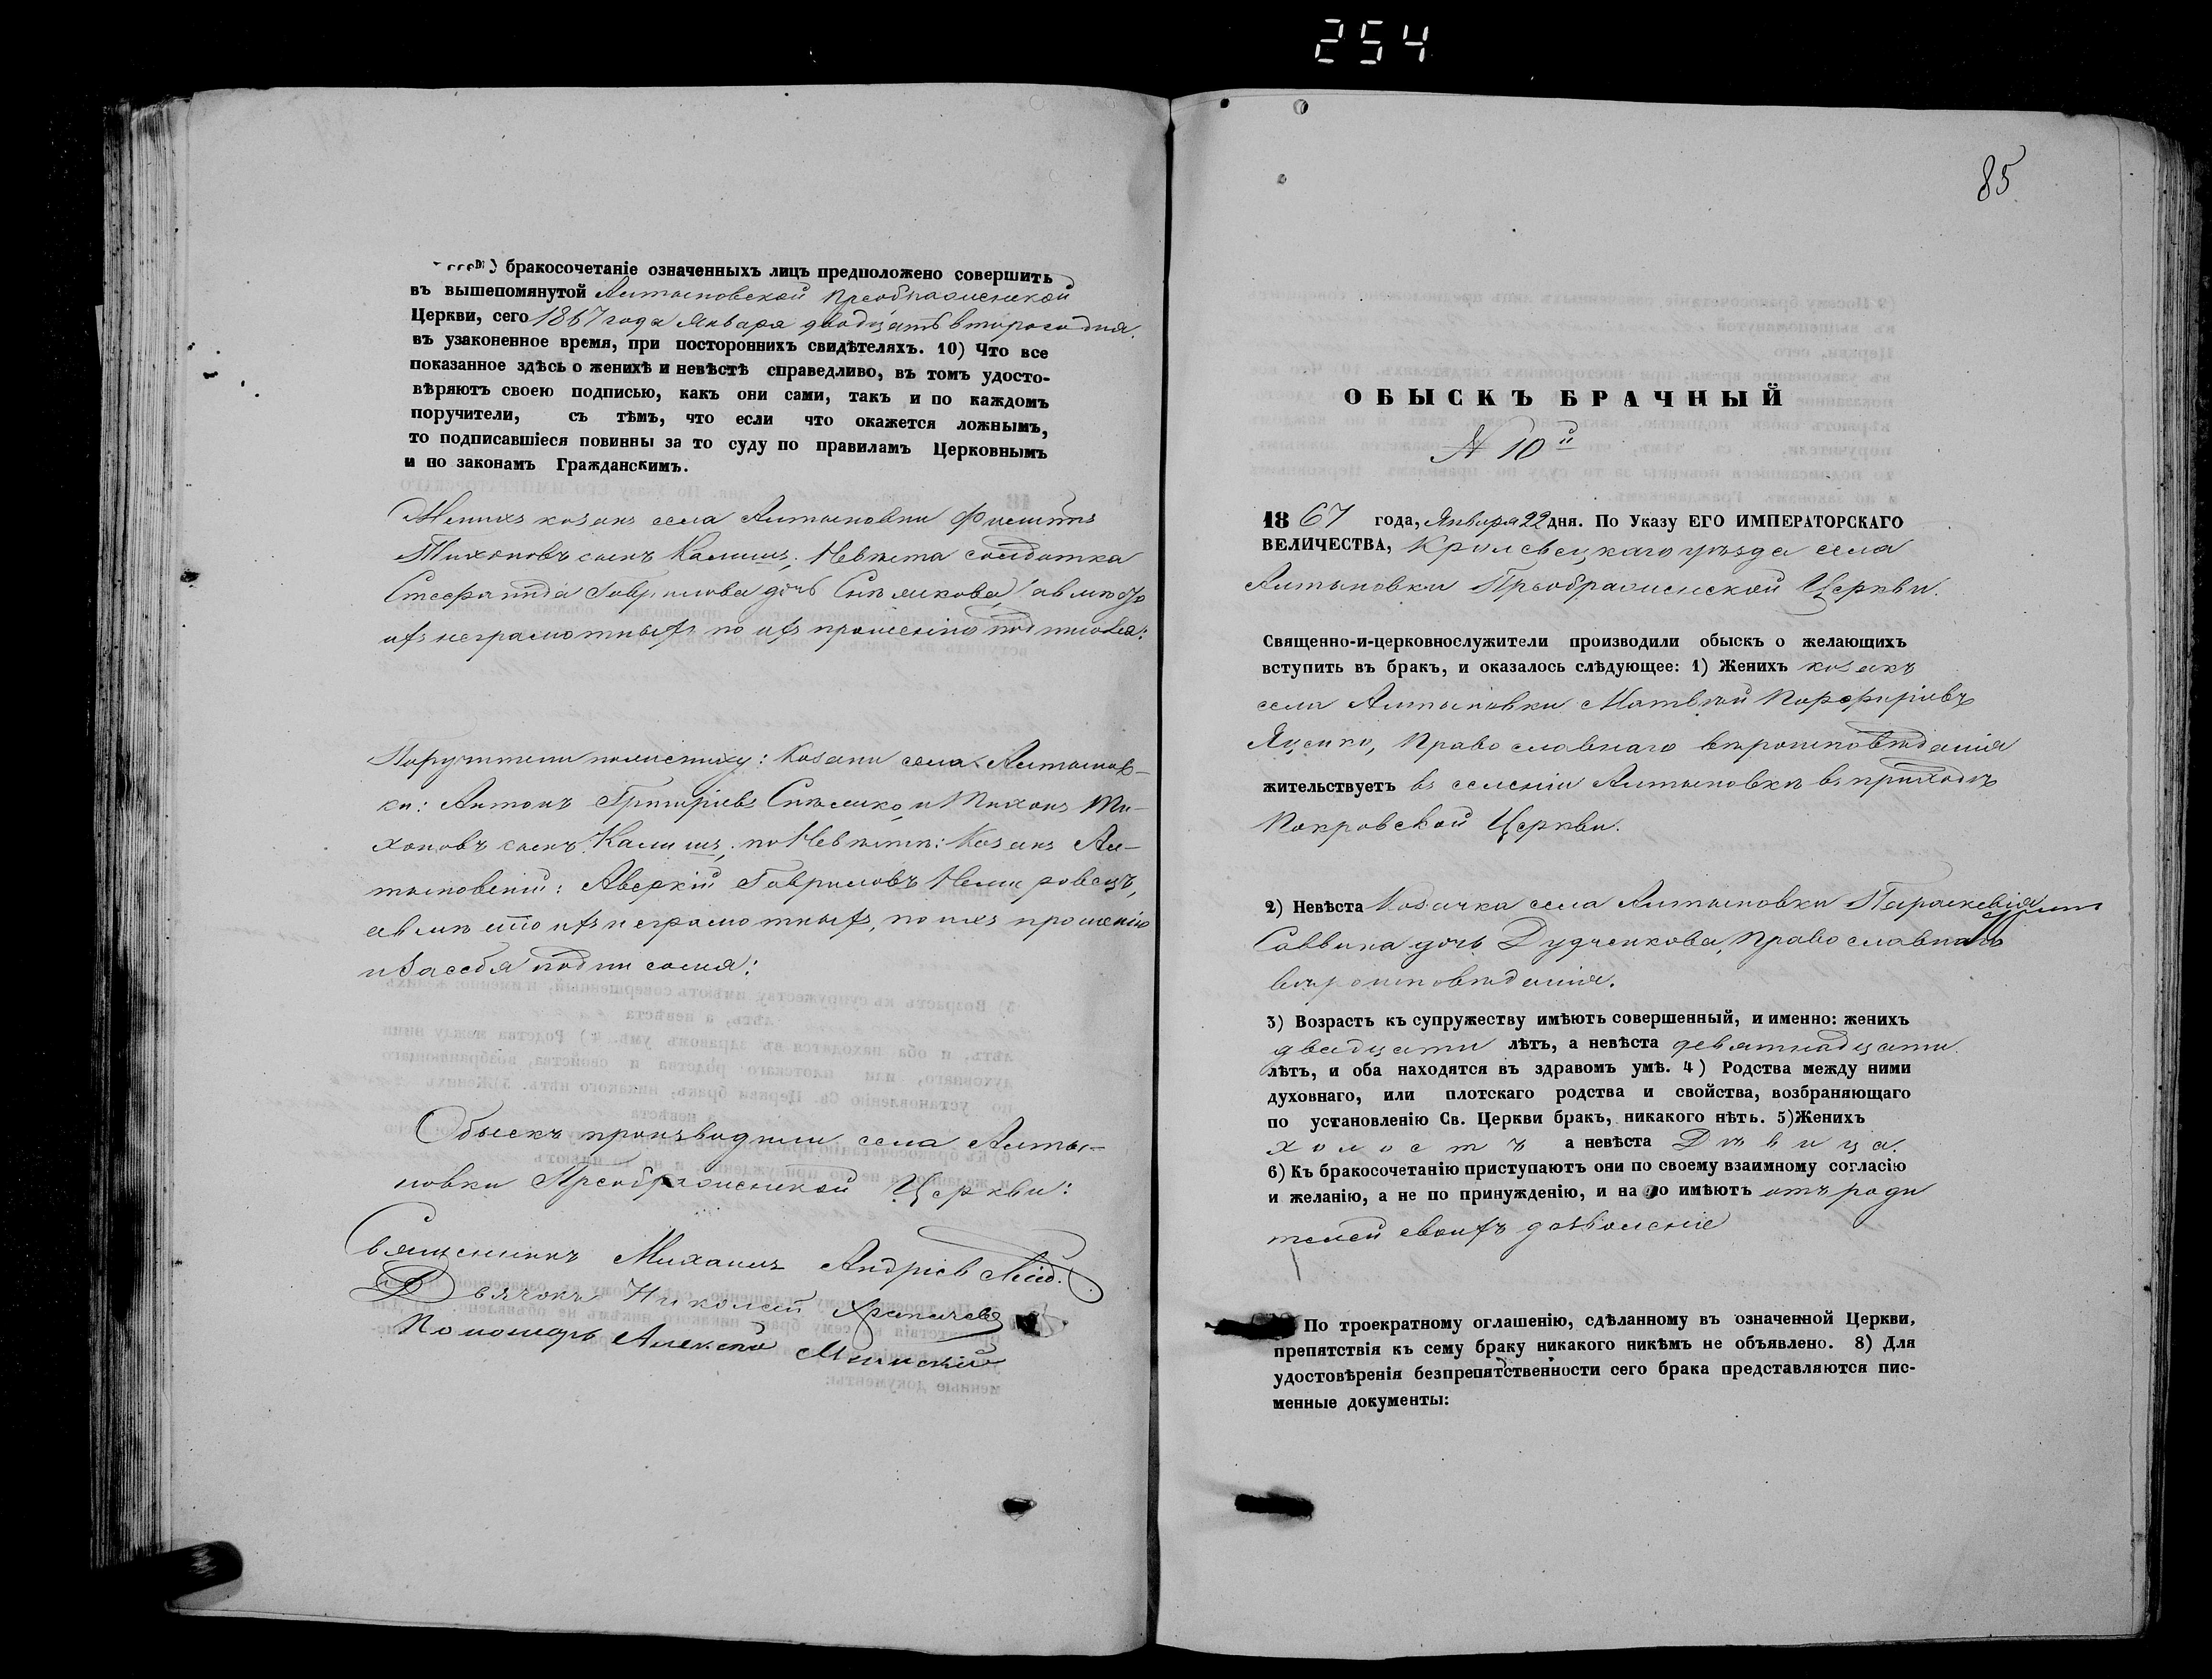 254
бракосочетаніе означенныхъ лицъ предположено совершить
въ вышепомянутой Алтыновской Преображенской
Церкви, сего 1867 года Января двадцать втораго дня.
въ узаконенное время, при постороннихъ свидѣтеляхъ. 10) Что все
показанное здѣсь о женихѣ и невѣстѣ справедливо, въ томъ удосто-
вѣряютъ своею подписью, какъ они сами, такъ и по каждомъ
поручители, съ тѣмъ, что если что окажется ложнымъ,
то подписавшіеся повинны за то суду по правиламъ Церковнымъ
и по законамъ Гражданскимъ.
Женихъ козакъ села Алтыновки Филиппъ
Тихоновъ сынъ Калишъ, Невѣста солдатка
Стефанида Гаврилова дочь Симакова, а вмѣсто
ихъ неграмотныхъ по ихъ прошенію подписался:
Поручители по жениху: Козаки села Алтынов-
ки: Антонъ Григоріевъ и Тихонъ Ти-
хоновъ сынъ Калишъ, по Невѣстѣ: Козакъ Ал-
тыновскій: Аверкій Гавриловъ
а вмѣсто ихъ неграмотныхъ, по ихъ прошенію
и За себя подписался:
Обыскъ производили села Алты-
новки Преображенской Церкви:
Священникъ Михаилъ Андріевъ
Дьячокъ Николай
Пономарь Алексѣй
85
ОБЫСКЪ БРАЧНЫЙ
№ 10й
1867 года, Января 22 дня. По Указу ЕГО ИМПЕРАТОРСКАГО
ВЕЛИЧЕСТВА, Кролевецкаго уѣзда села
Алтыновки Преображенской Церкви.
Священно-и-церковнослужители производили обыскъ о желающихъ
вступить въ бракъ, и оказалось слѣдующее: 1) Женихъ козакъ
села Алтыновки Матвѣй Порфиріевъ
Яценко, Православнаго вѣроисповѣданія
жительствуетъ въ селеніи Алтыновкѣ въ приходѣ
Покровской Церкви.
2) Невѣста Козачка села Алтыновки Параскевія
Саввина дочь Дудченкова, Православнаго
вѣроисповѣданія.
3) Возрастъ къ супружеству имѣютъ совершенный, и именно: женихъ
двадцати лѣтъ, а невѣста девятнадцати.
лѣтъ, и оба находятся въ здравомъ умѣ. 4) Родства между ними
духовнаго, или плотскаго родства и свойства, возбраняющаго
по установленію Св. Церкви бракъ, никакого нѣтъ. 5) Женихъ
холостъ а невѣста Дѣвица.
6) Къ бракосочетанію приступаютъ они по своему взаимному согласію
и желанію, а не по принужденію, и на то имѣютъ отъ роди
телей своихъ дозволеніе
По троекратному оглашенію, сдѣланному въ означенной Церкви,
препятствія къ сему браку никакого никѣмъ не объявлено. 8) Для
удостовѣренія безпрепятственности сего брака представляются пис-
менные документы: